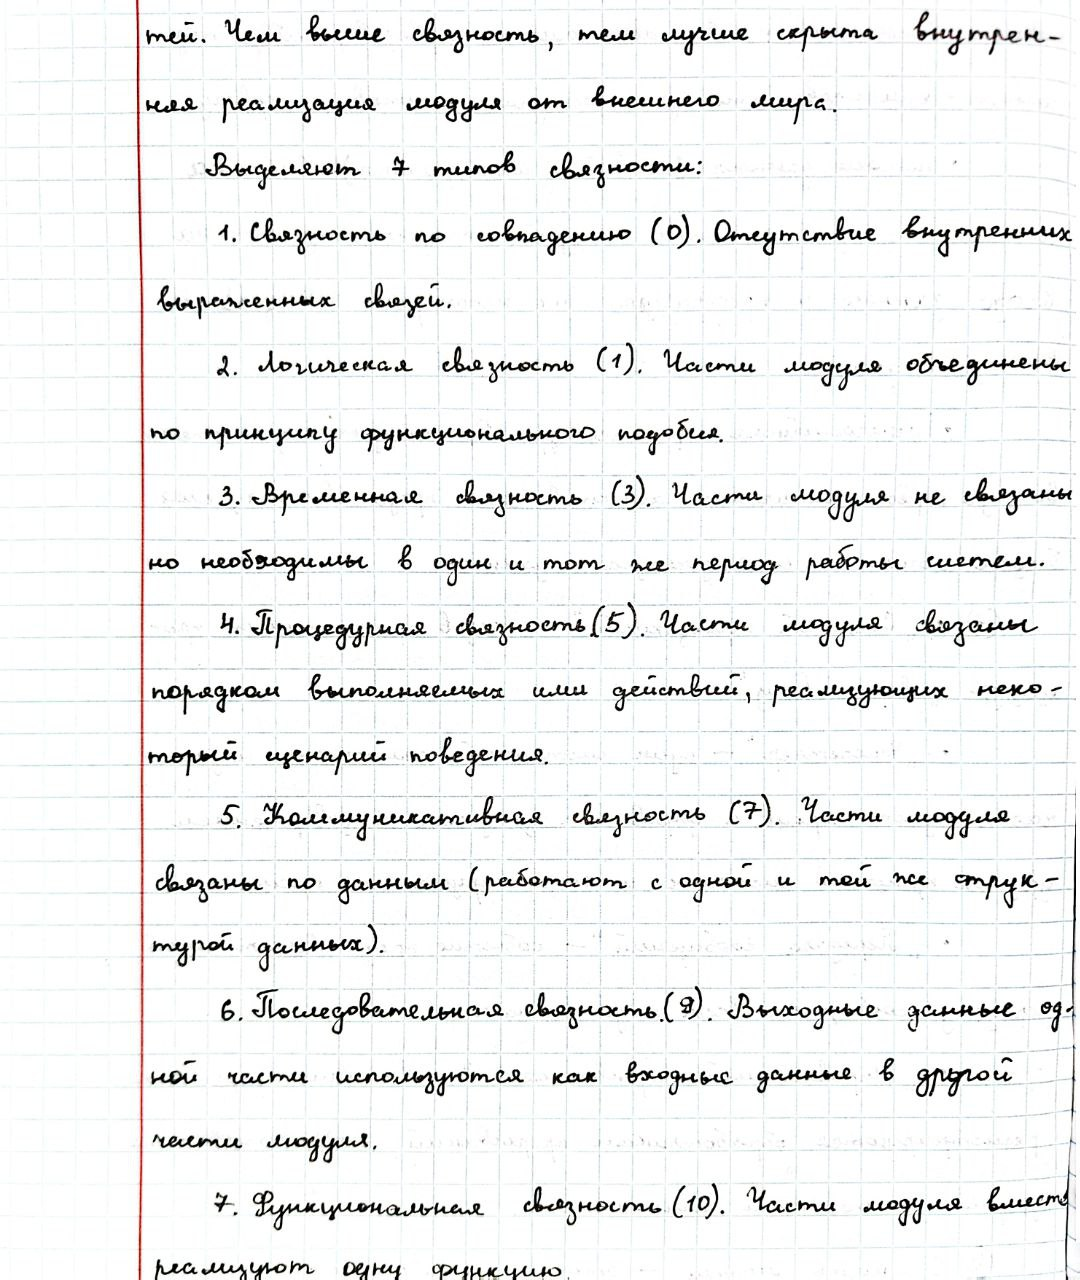 тей. Чем выше связность, тем лучше скрыта внутрен-
няя реализация модуля от внешнего мира.
Выделяют 7 типов связности:
1. Связность по совпадению (0). Отсутствие внутренних
выраженных связей.
2. Логическая связность (1). Части модуля объединены
по принципу функционального подобия.
3. Временная связность (3). Части модуля не связаны
но необходимы в один и тот же период работы систем.
4. Процедурная связность (5). Части модуля связаны
порядком выполняемых ими действий, реализующих неко-
торый сценарий поведения.
5. Коммуникативная связность (7). Части модуля
связаны по данным (работают с одной и той же струк-
турой данных).
6. Последовательная связность. (9). Выходные данные од-
ной части используются как входные данные в другой
части модуля.
7. Функциональная связность (10). Части модуля вместе
реализуют одну функцию